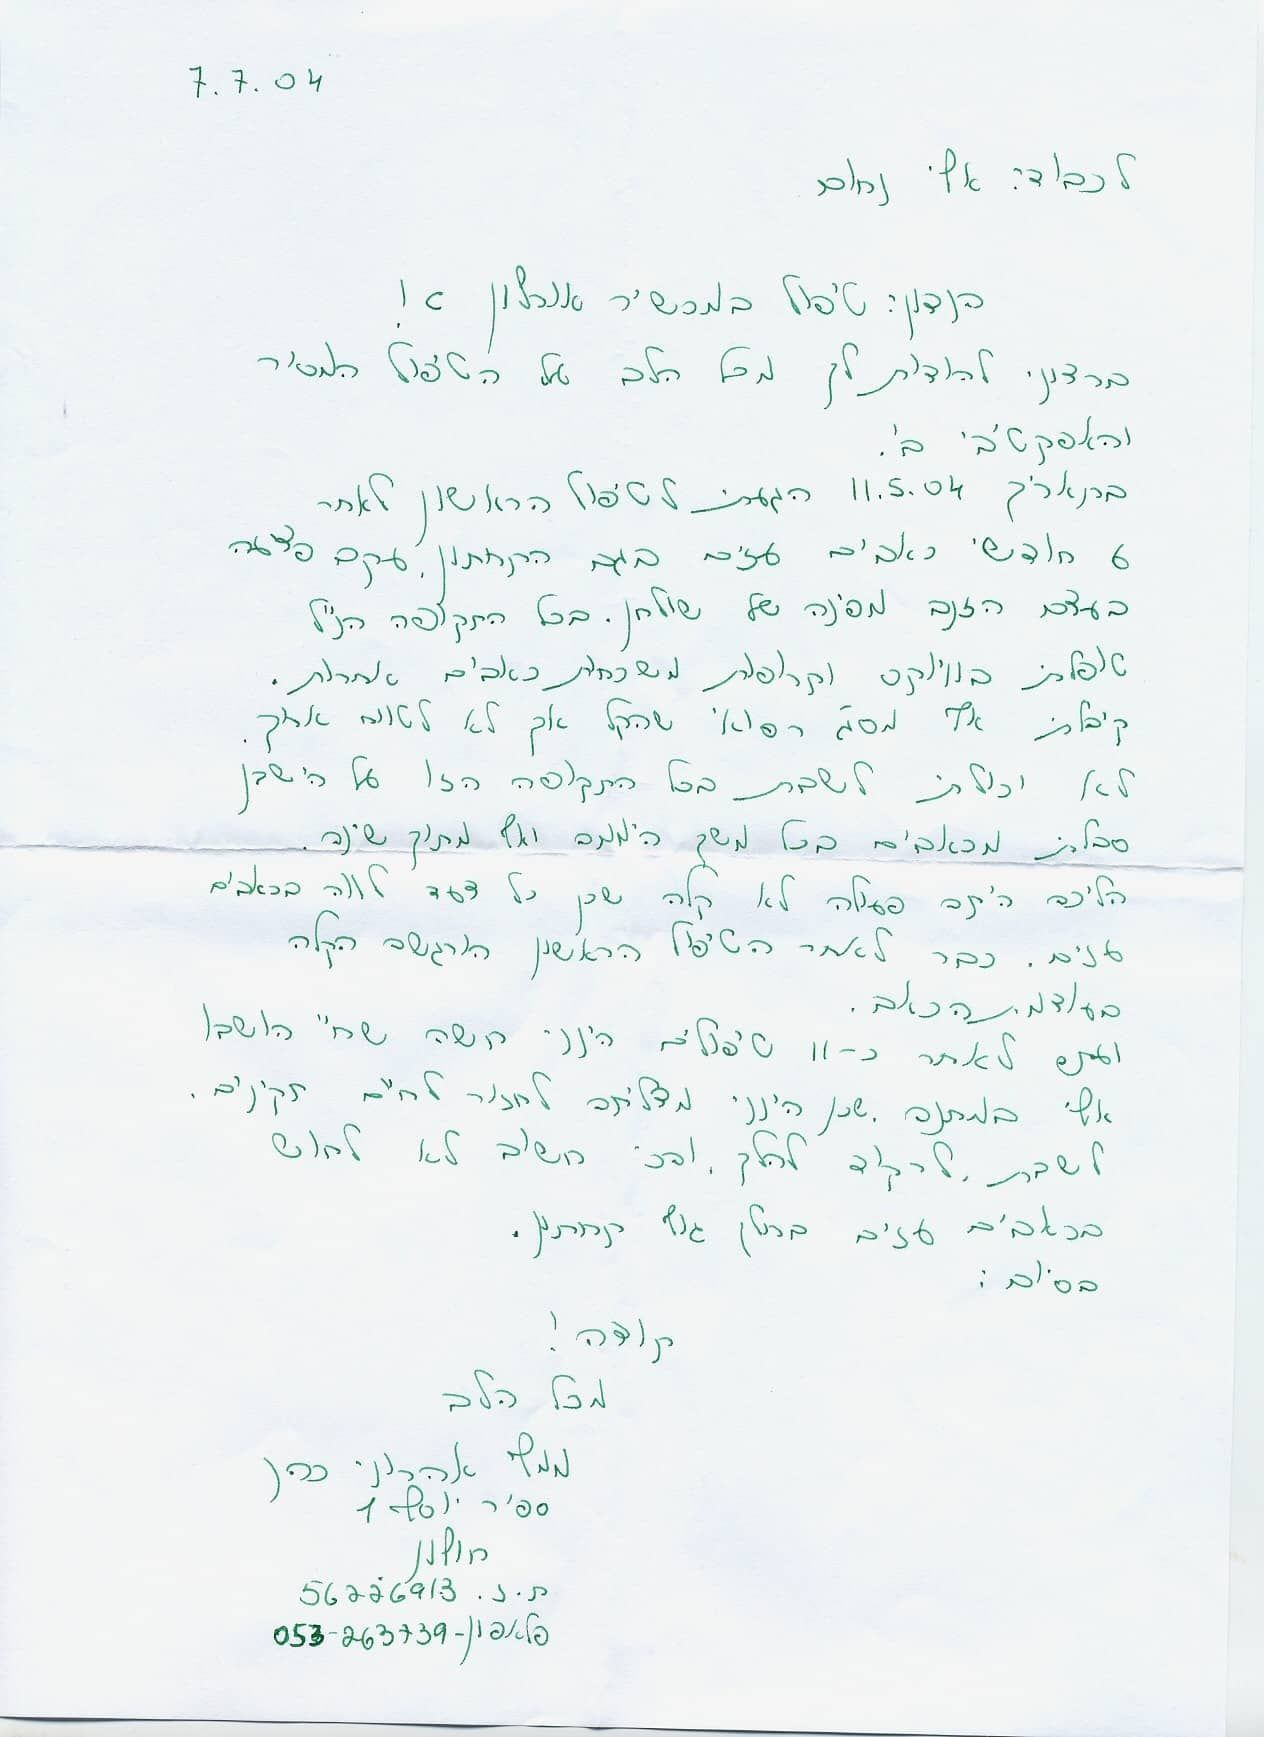 7.7.04
לכבוד: אלי נחום
הנדון: טיפול במכשיר
ברצוני להודות לך מכל הלב על הטיפול המסור
והאפקטיבי בי.
בתאריך 11.5.04 הגעתי לטיפול הראשון לאחר
6 חודשי כאבים עזים בגב התחתון, עקב פציעה
בעצם הזנב מפינה של שולחן. בכל התקופה הנ"ל
טופלתי בוויוקס וקרופות משככות כאבים אחרות.
קיבלתי אף מסג' רפואי שהקל אך לא לטווח ארוך.
לא יכולתי לשבת בכל התקופה הזו על הישבן
סבלתי מכאבים בכל משך היממה ואף מתוך שינה.
הליכה היתה פעולה לא קלה שכן כל צעד לווה בכאבים
עזים. כבר לאחר הטיפול הראשון הורגשה הקלה
בעוצמת הכאב.
ועתה לאחר כ-11 טיפולים הינני חשה שחיי הושבו
אלי במתנה, שכן הינני מצליחה לחזור לחיים תקינים.
לשבת, לרקוד, להלך, והכי חשוב לא לחוש
בכאבים עזים בחלק גוף תחתון.
בסיום:
תודה!
מכל הלב
אהרוני כהן
ספיר יוסף 1
חולון
ת.ז. 56226913
פלאפון-053-263739